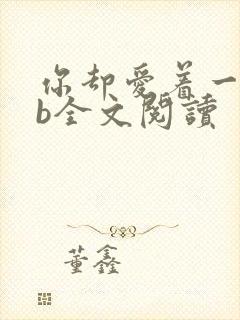 你却爱着一
b全文阅读
董鑫